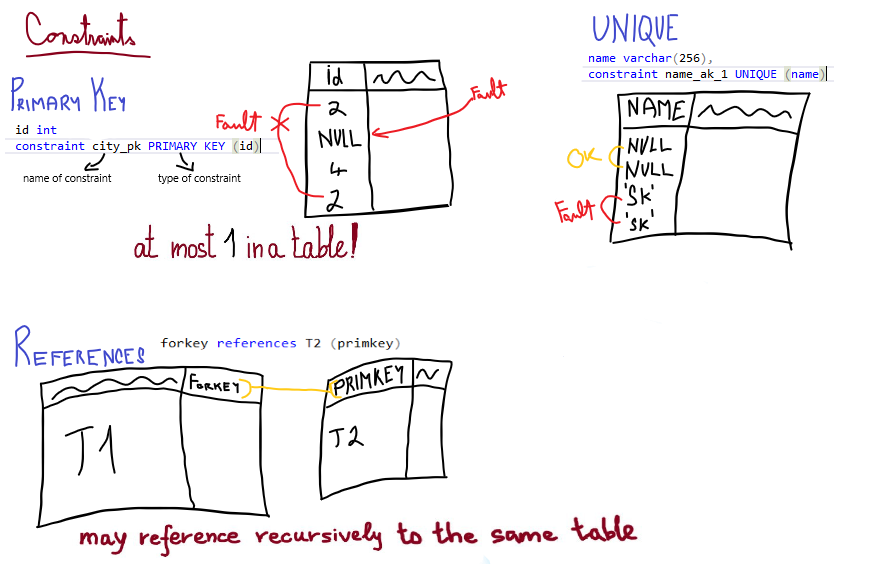 Constraints
PRIMARY KEY
id int
constraint city_pk PRIMARY KEY (id)
name of constraint
type of constraint
id
2
NULL
4
2
Fault
Fault
at most 1 in a table!
UNIQUE
name varchar(256),
constraint name_ak_1 UNIQUE (name)
NAME
NULL
NULL
'SK'
'SK'
OK
Fault
REFERENCES
forkey references T2 (primkey)
FORKEY
T1
PRIMKEY
T2
may reference recursively to the same table